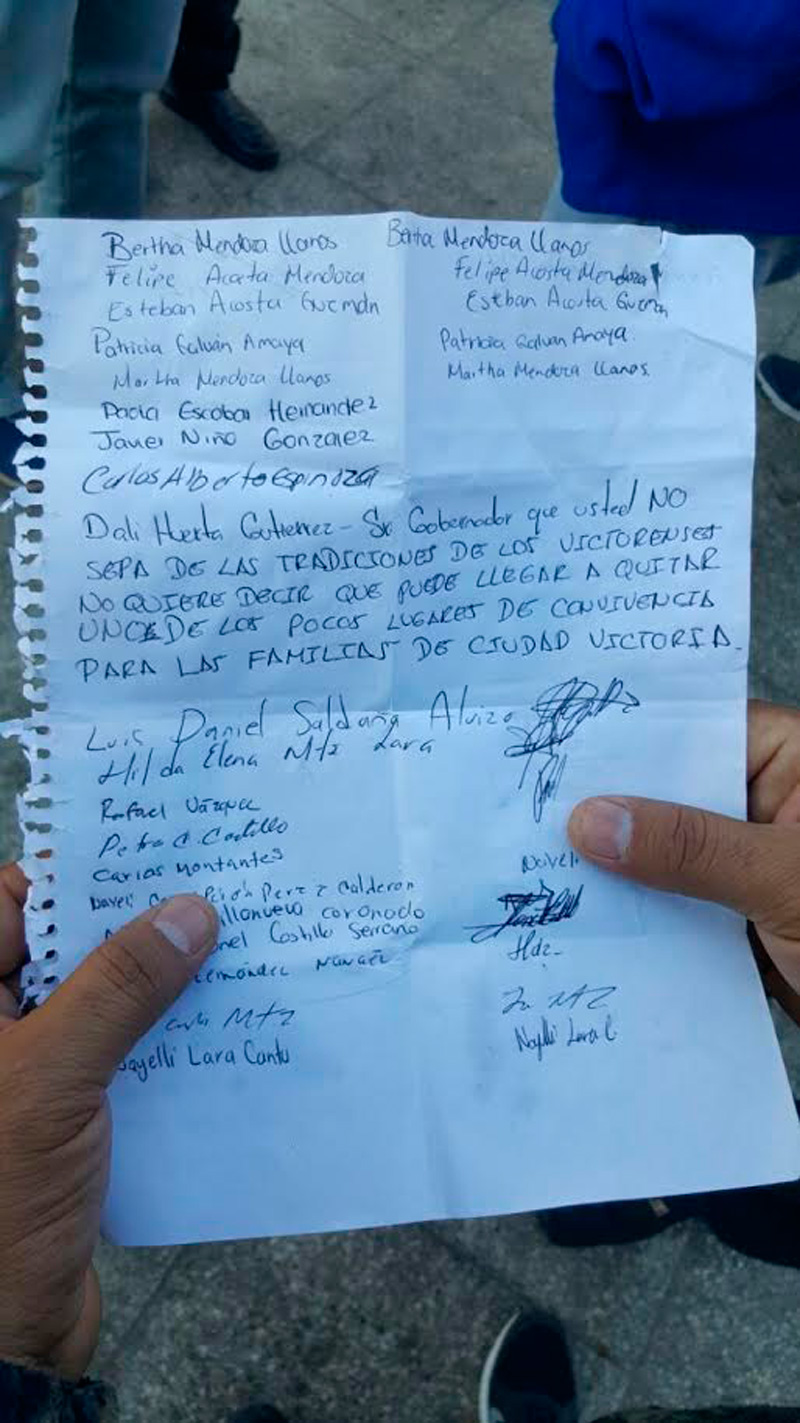 Bertha Mendoza Llanos Berta Mendoza Llanos
Felipe Acosta Mendoza Felipe Acosta Mendoza
Esteban Acosta Guzmán Esteban Acosta Guzmán
Patricia Galván Amaya Patricia Galvan Amaya
Martha Mendoza Llanos Martha Mendoza Llanos
Paola Escobar Hernandez
Javier Niño Gonzalez
Carlos Alberto Espinoza
Dali Huerta Gutierrez - Sr Gobernador que usted NO
SEPA DE LAS TRADICIONES DE LOS VICTORENSES
NO QUIERE DECIR QUE PUEDE LLEGAR A QUITAR
UNO DE LOS POCOS LUGARES DE CONVIVENCIA
PARA LAS FAMILIAS DE CIUDAD VICTORIA.
Luis Daniel Saldaña Alvizo
Hilda Elena Mtz Lara
Rafael Vázquez
Petra C. Castillo
Carlos Montantes
Perez Calderon
illanueva coronado
onel Castillo Serrano
Hdz-
Mtz Mtz
Nayelli Lara Cantu Nayelli Lara C